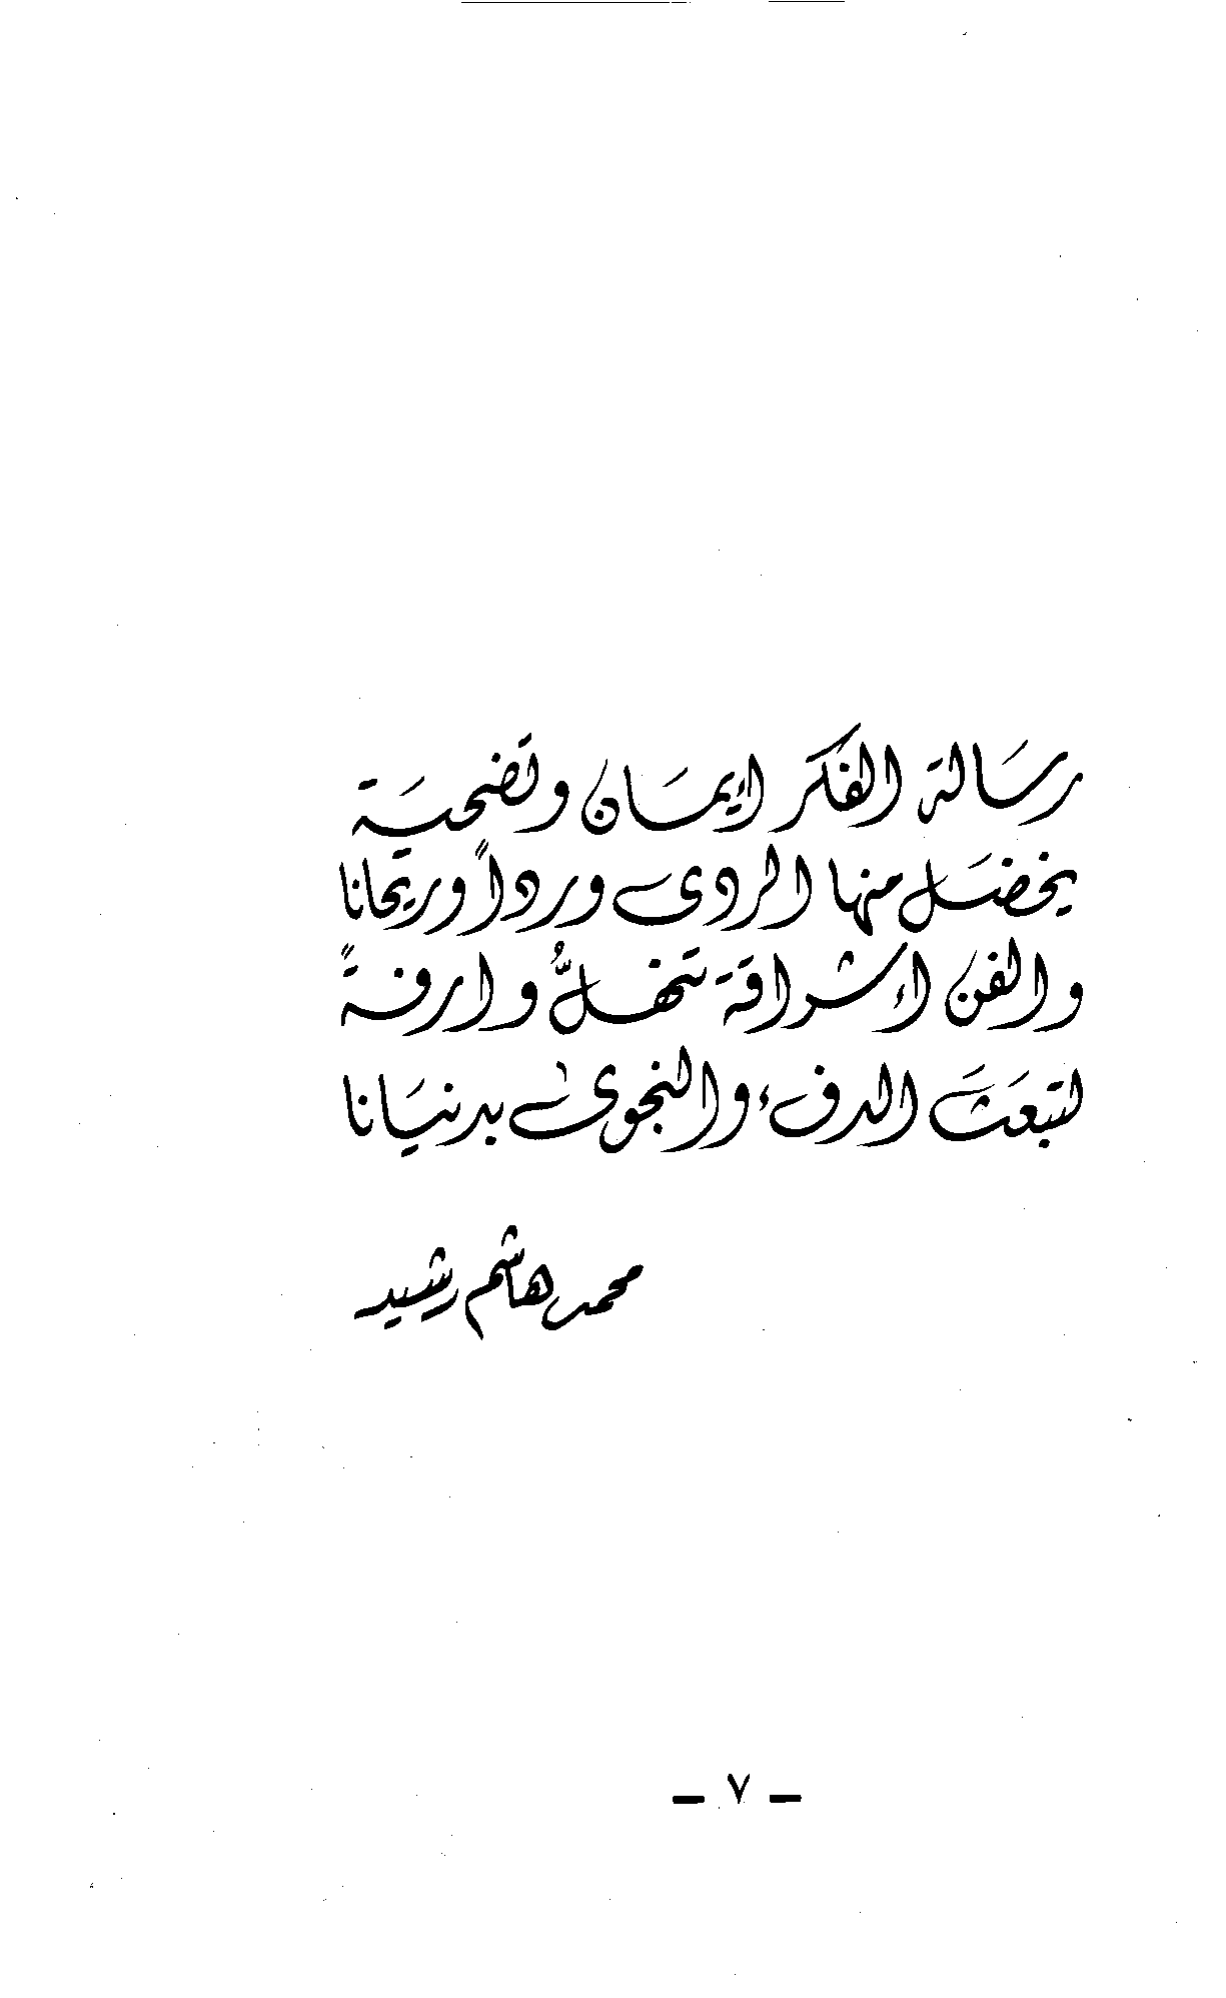 رسالة الفكر إيمان وتضحية
يخضل منها الردى ورداً وريحانا
والفن إشراقة تنهلُّ وارفةً
لتبعث الدفء والنجوى بدنيانا
محمد هاشم رشيد
— ٧ —